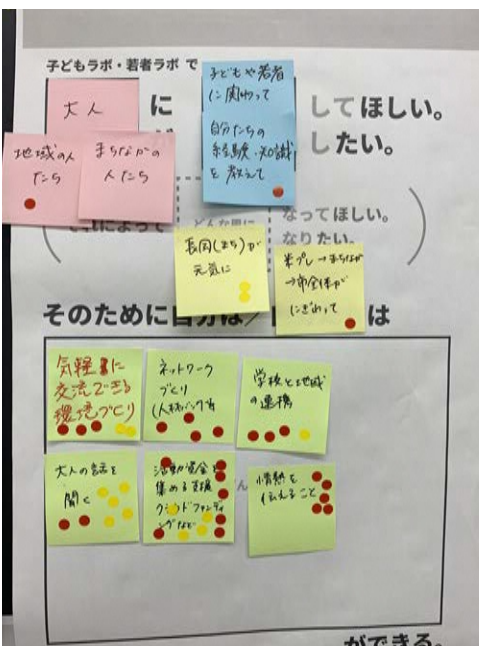 子どもラボ・若者ラボ で
大人
に
子どもや若者
に関わって
自分たちの
経験・知識
を教えて
してほしい。
したい。
地域の人
たち
まちなかの
人たち
によって
どんな風に
なってほしい。
なりたい。
長岡(まち)が
元気に
米プレ→まちなか
→市全体が
にぎわって
そのために自分は
は
気軽に
交流できる
環境づくり
ネットワーク
づくり
(人材バンク等
学校と地域
の連携
大人の話を
聞く
活動資金を
集める支援
クラウドファンディ
ングなど
情熱を
伝えること
ができる。